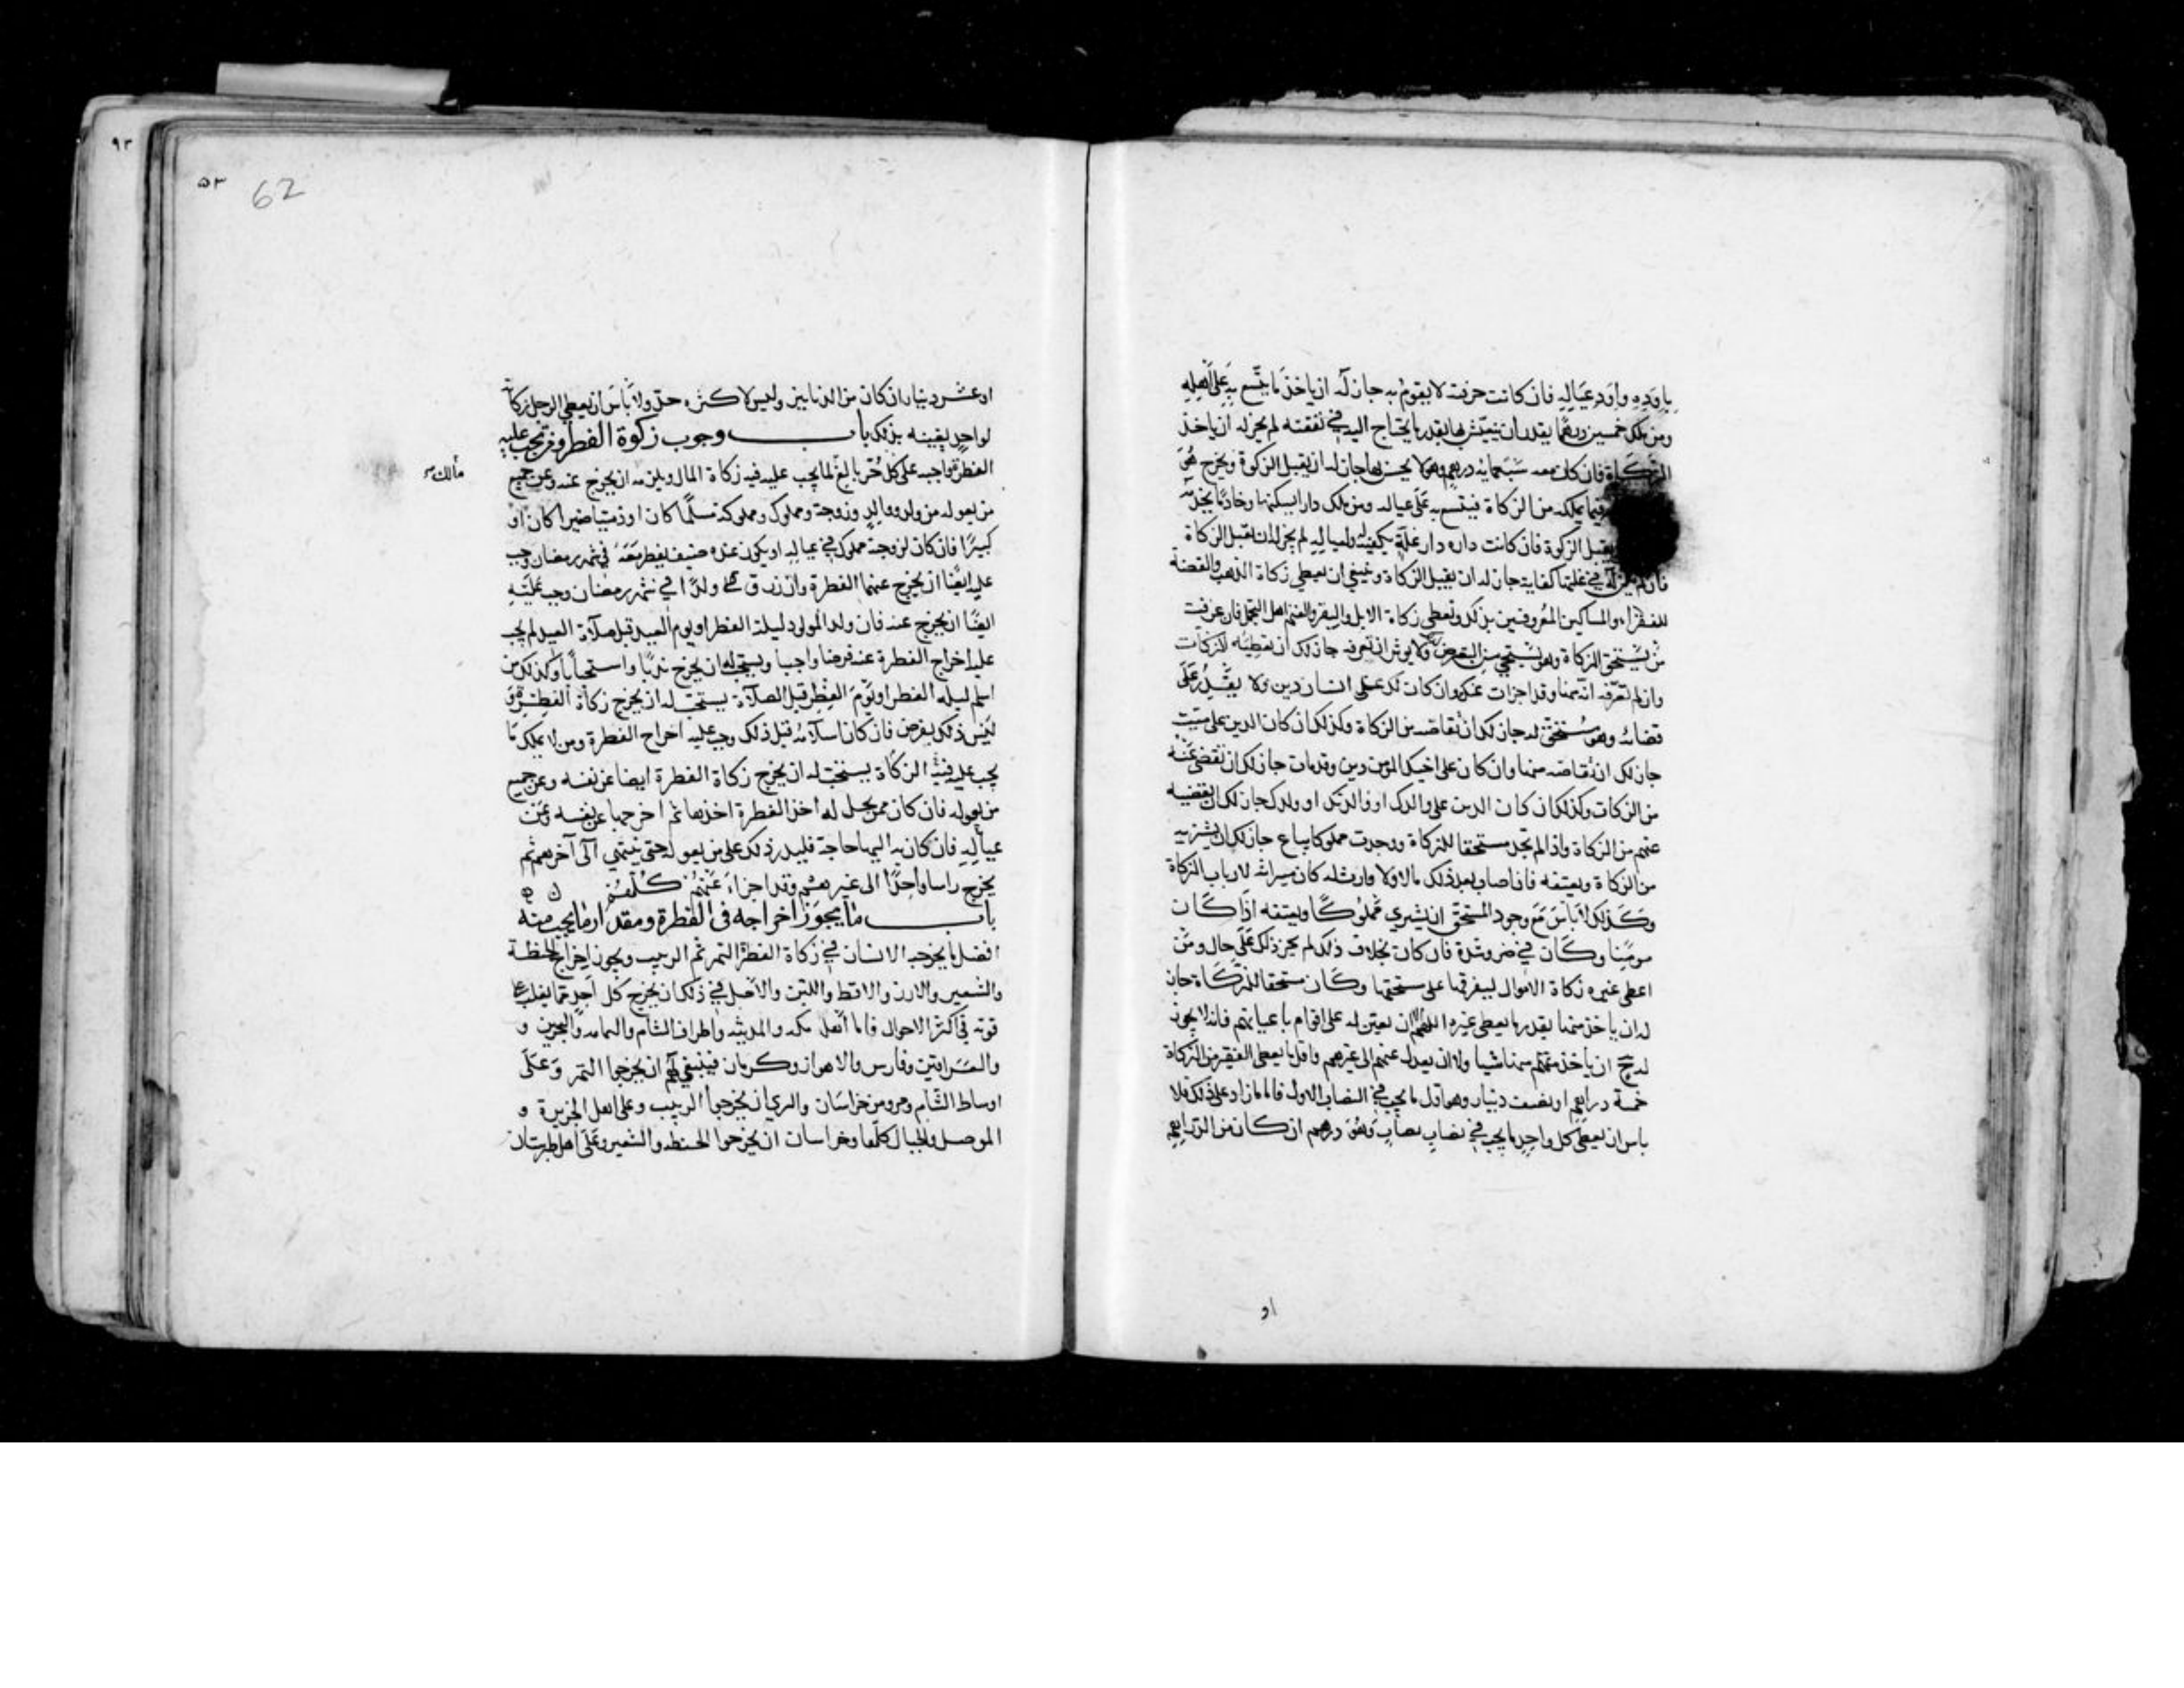 باوده واود عياله فان كانت حرفته لا يقوم به جاز له ان ياخذ ما يتسع به على اهله
ومن ملك خمسين درهما يقدر ان يتعيش بها بقدر ما يحتاج اليه في نفقته لم يجز له ان ياخذ
الزكاة فان كان معه سبعمايه درهم وهو لا يحسن بها جاز له ان يقبل الزكوة ويخرج هو
فيما يملكه من الزكاة فيتسع به على عياله ومن ملك دارا يسكنها وخادما يخدمه
يقبل الزكوة فان كانت داره دار غلة يكفيه ولعياله لم يجز له ان يقبل الزكاة
فان لم يكن له في غلتها كفاية جاز له ان يقبل الزكاة وينبغي ان يعطي زكاة الذهب والفضة
للفقراء والمساكين المعروفين بذلك وتعطي زكاة الابل والبقر والغنم اهل التجمل فان عرفت
من يستحق الزكاة وهو يستحيي من التعرض ولا يوثر ان تعرفه جاز لك ان تعطيه الزكات
وان لم تعرفه انه منها وقد اجزات عنك وان كان لك على انسان دين ولا يقدر على
قضائه وهو مستحق له جاز لك ان تقاصه من الزكاة وكذلك ان كان الدين على ميت
جاز لك ان تقاصه منها وان كان على اخيك المومن دين وقد مات جاز لك ان تقضي عنه
من الزكات وكذلك ان كان الدين على والدك او والدتك او ولدك جاز لك ان تقضيه
عنهم من الزكاة واذا لم تجد مستحقا للزكاة ووجدت مملوكا يباع جاز لك ان تشتريه
من الزكاة وتعتقه فان اصاب بعد ذلك مالا ولا وارث له كان ميراثه لارباب الزكاة
وكذلك لا باس مع وجود المستحق ان يشتري مملوكا ويعتقه اذا كان
مومنا وكان في ضر وشدة فان كان بخلاف ذلك لم يجز ذلك على حال ومن
اعطى غيره زكاة الاموال ليفرقها على مستحقها وكان مستحقا للزكاة جاز
له ان ياخذ منها بقدر ما يعطي غيره اللهم الا ان يعين له على اقوام باعيانهم فانه لا يجوز
له ح ان ياخذ منها شيا ولا ان يعدل عنهم الى غيرهم واقل ما يعطي الفقير من الزكاة
خمسة دراهم او نصف دينار وهو اقل ما يجب في النصاب الاول فاما ما زاد على ذلك فلا
باس ان يعطي كل واحد ما يجب في نصاب نصاب وهو درهم ان كان من الدراهم
او
٩٣
٥٣
62
او عشر دينار ان كان من الدنانير وليس لاكثره حد ولا باس ان يعطي الرجل زكاته
لواحد يغنيه بذلك باب وجوب زكوة الفطر ومن تجب عليه
الفطرة واجبه على كل حر بالغ لما يجب عليه فيه زكاة المال ويلزمه ان يخرج عنه وعن جميع
مالك
من يعوله من ولد ووالد وزوجة ومملوك ومملوكة مسلما كان او ذميا صغيرا كان او
كبيرا فان كان لزوجته مملوك في عياله او يكون عنده ضيف يفطر معه في شهر رمضان وجب
عليه ايضا ان يخرج عنهما الفطرة وان رزق ولدا في شهر رمضان وجب عليه
ايضا ان يخرج عنه فان ولد المولود ليلة الفطر او يوم العيد قبل صلاة العيد لم يجب
عليه اخراج الفطرة عنه فرضا واجبا ويستحب له ان يخرج ندبا واستحبابا وكذلك من
اسلم ليله الفطر او يوم الفطر قبل الصلاة يستحب له ان يخرج زكاة الفطرة و
ليس ذلك بفرض فان كان اسلامه قبل ذلك وجب عليه اخراج الفطرة ومن لا يملك ما
يجب عليه فيه الزكاة يستحب له ان يخرج زكاة الفطرة ايضا عن نفسه وعن جميع
من يعوله فان كان ممن يحل له اخذ الفطرة اخذها ثم اخرجها عن نفسه وعن
عياله فان كان به اليها حاجة فليدر ذلك على من يعوله حتى ينتهي الى آخرهم ثم
يخرج راسا واحدا الى غيرهم وقد اجزاء عنهم كلهم
باب ما يجوز اخراجه في الفطرة ومقدار ما يجب منه
افضل ما يخرجه الانسان في زكاة الفطرة التمر ثم الزبيب ويجوز اخراج الحنطة
والشعير والارز والاقط واللبن والاصل في ذلك ان يخرج كل احد مما يغلب على
قوته في اكثر الاحوال فاما اهل مكه والمدينه واطراف الشام واليمامه والبحرين و
والعراقين وفارس والاهواز وكرمان فينبغي لهم ان يخرجوا التمر وعلى
اوساط الشام ومرو من خراسان والري ان يخرجوا الزبيب وعلى اهل الجزيرة و
الموصل والجبال كلها وخراسان ان يخرجوا الحنطه والشعير وعلى اهل طبرستان